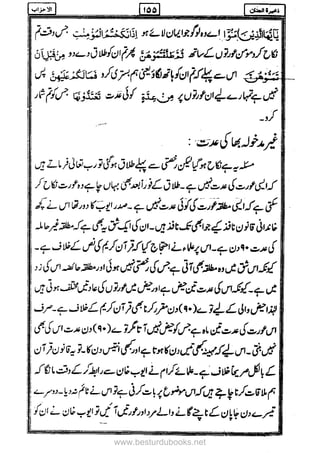 ذخیرۃ الجنان ۱۵۵ الاحزاب
یٰۤاَیُّهَا الَّذِیْنَ اٰمَنُوْۤا اے وہ لوگو جو ایمان لائے ہو اِذَا نَكَحْتُمُ الْمُؤْمِنٰتِ جس وقت تم
نکاح کرو مومن عورتوں کے ساتھ ثُمَّ طَلَّقْتُمُوْهُنَّ پھر تم ان کو طلاق دے دو مِنْ قَبْلِ اَنْ
تَمَسُّوْهُنَّ اس سے پہلے کہ تم ان کو ہاتھ لگاؤ یعنی ہم بستری کرو فَمَا لَكُمْ عَلَیْهِنَّ پس
نہیں ہے تمہارے لیے ان عورتوں پر مِنْ عِدَّةٍ کوئی عدت تَعْتَدُّوْنَهَا جس کو تم شمار
کرو۔
غیر مدخولہ بھا کی عدت :
مسئلہ یہ ہے نکاح ہو گیا لیکن رخصتی سے پہلے طلاق ہو گئی تو رب تعالیٰ فرماتے ہیں
کہ ایسی عورت کی عدت نہیں ہے۔ طلاق کے فوراً بعد بھی جہاں چاہے وہ عورت نکاح کر
سکتی ہے۔ ایسی مطلقہ عورت کی کوئی عدت نہیں ہے۔ صدر ایوب کا دور تھا اس نے کچھ
خاندانی قانون نافذ کیے جو ابھی تک نافذ ہیں۔ ان کی ایک شق یہ بھی ہے کہ مطلقہ غیر حاملہ
کی عدت ۹۰ دن ہے۔ اس پر علماء نے احتجاج کیا کہ قرآن کریم کی نص کے خلاف ہے۔
کیونکہ اس شق میں وہ مطلقہ بھی آتی ہے جس کی رخصتی نہیں ہوئی اور مطلقہ حائضہ اس کی زد
میں ہے۔ کیونکہ اس کی عدت تین حیض ہے اور حیض میں عورتوں کی عادتیں مختلف ہوتی ہیں
لہٰذا حیض والی کے لیے توے (۹۰) دن مقرر کرنا بھی قرآن کریم کے خلاف ہے۔ صرف
اس عورت کی عدت تین ماہ ہے جس کو حیض نہیں آتا مگر توے (۹۰) دن عدت اس کی بھی
نہیں بنتی۔ اس لیے کہ مہینہ کبھی تیس دن کا ہوتا ہے اور کبھی انتیس دن کا۔ تو یہ قانون قرآن
کے بالکل صریحاً خلاف ہے۔ علمائے کرام نے ایوب خان سے رابطہ کر کے وقت مانگا کہ
ہم ملاقات کرنا چاہتے ہیں کہ اس موضوع پر بات کرنی ہے تو اس نے ٹائم نہ دیا۔ دوسرے
تیسرے دن جاپان کے ناچنے گانے والے مرد اور عورتیں آئیں تو ایوب خان نے ان کو
www.besturdubooks.net